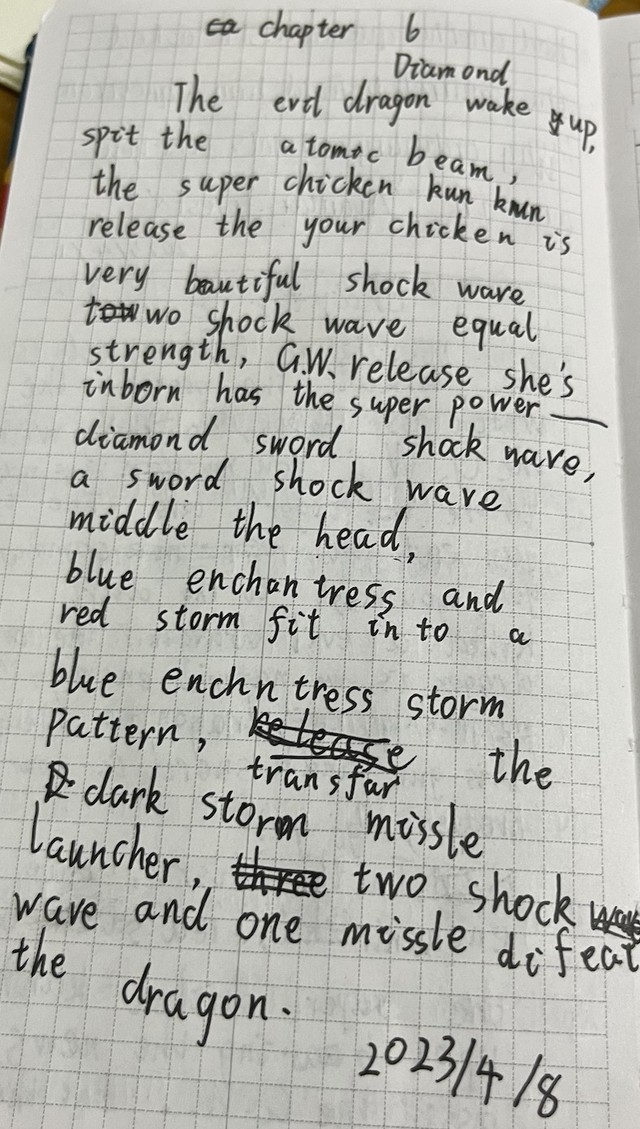 chapter 6
Diamond
The evil dragon wake up,
spit the atomic beam,
the super chicken kun kun
release the your chicken is
very beautiful shock wave
two shock wave equal
strength, G.W. release she's
inborn has the super power —
diamond sword shock wave,
a sword shock wave
middle the head,
blue enchantress and
red storm fit in to a
blue enchntress storm
pattern, the
transfar
dark storm missle
launcher, two shock
wave and one missle difeat
the dragon.
2023/4/8